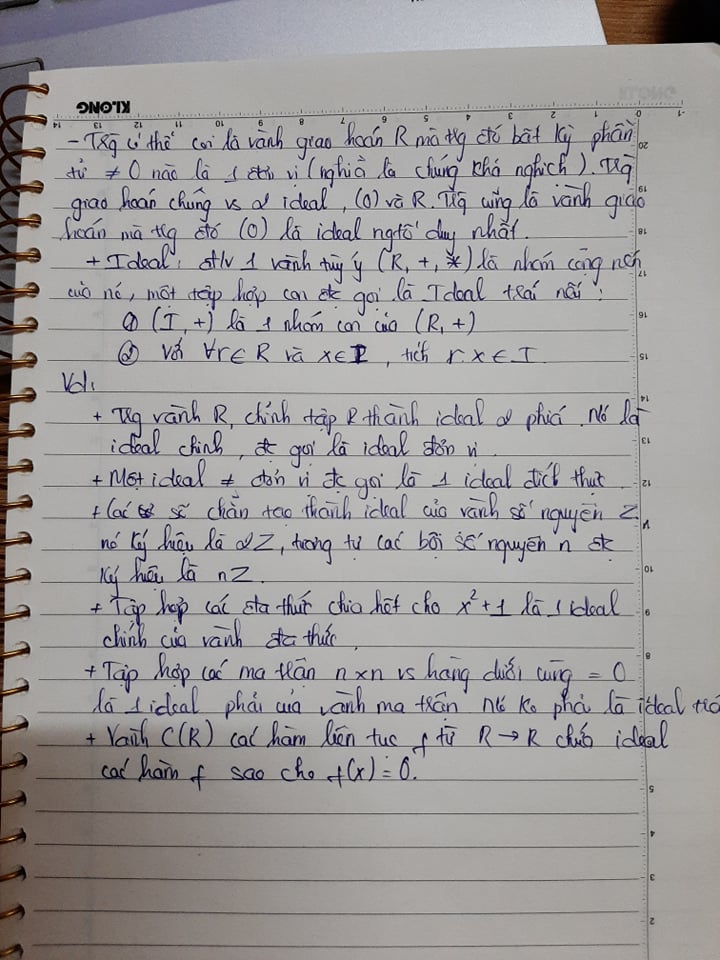 KLONG
14 13 12 11 10 9 8 7 6 5 4 3 2 1 0 -1
- Trg có thể coi là vành giao hoán R mà trg đó bất kỳ phần
tử ≠ 0 nào là 1 đơn vị (nghĩa là chúng khả nghịch). Trg
giao hoán chúng vs 2 ideal, (0) và R. Trg cũng là vành giao
hoán mà trg đó (0) là ideal ngtố duy nhất.
+ Ideal: đ/v 1 vành tùy ý (R, +, *) là nhóm cộng
của nó, một tập hợp con đc gọi là Ideal trái nếu:
① (I, +) là 1 nhóm con của (R, +)
② Với ∀r∈R và x∈I, tích r.x ∈ I
Vd:
+ Trg vành R, chính tập R thành ideal 2 phía. Nó là
ideal chính, đc gọi là ideal đơn vị.
+ Một ideal ≠ đơn vị đc gọi là 1 ideal đích thực
+ Các số chẵn tạo thành ideal của vành số nguyên Z,
nó ký hiệu là 2Z, tương tự các bội số nguyên n đc
ký hiệu là nZ.
+ Tập hợp các đa thức chia hết cho x²+1 là 1 ideal
chính của vành đa thức.
+ Tập hợp các ma trận n×n vs hàng dưới cùng = 0
là 1 ideal phải của vành ma trận nó ko phải là ideal
+ Vành C(R) các hàm liên tục f từ R → R chứa ideal
các hàm f sao cho f(x) = 0.
20
19
18
17
16
15
14
13
12
11
10
9
8
5
4
3
2